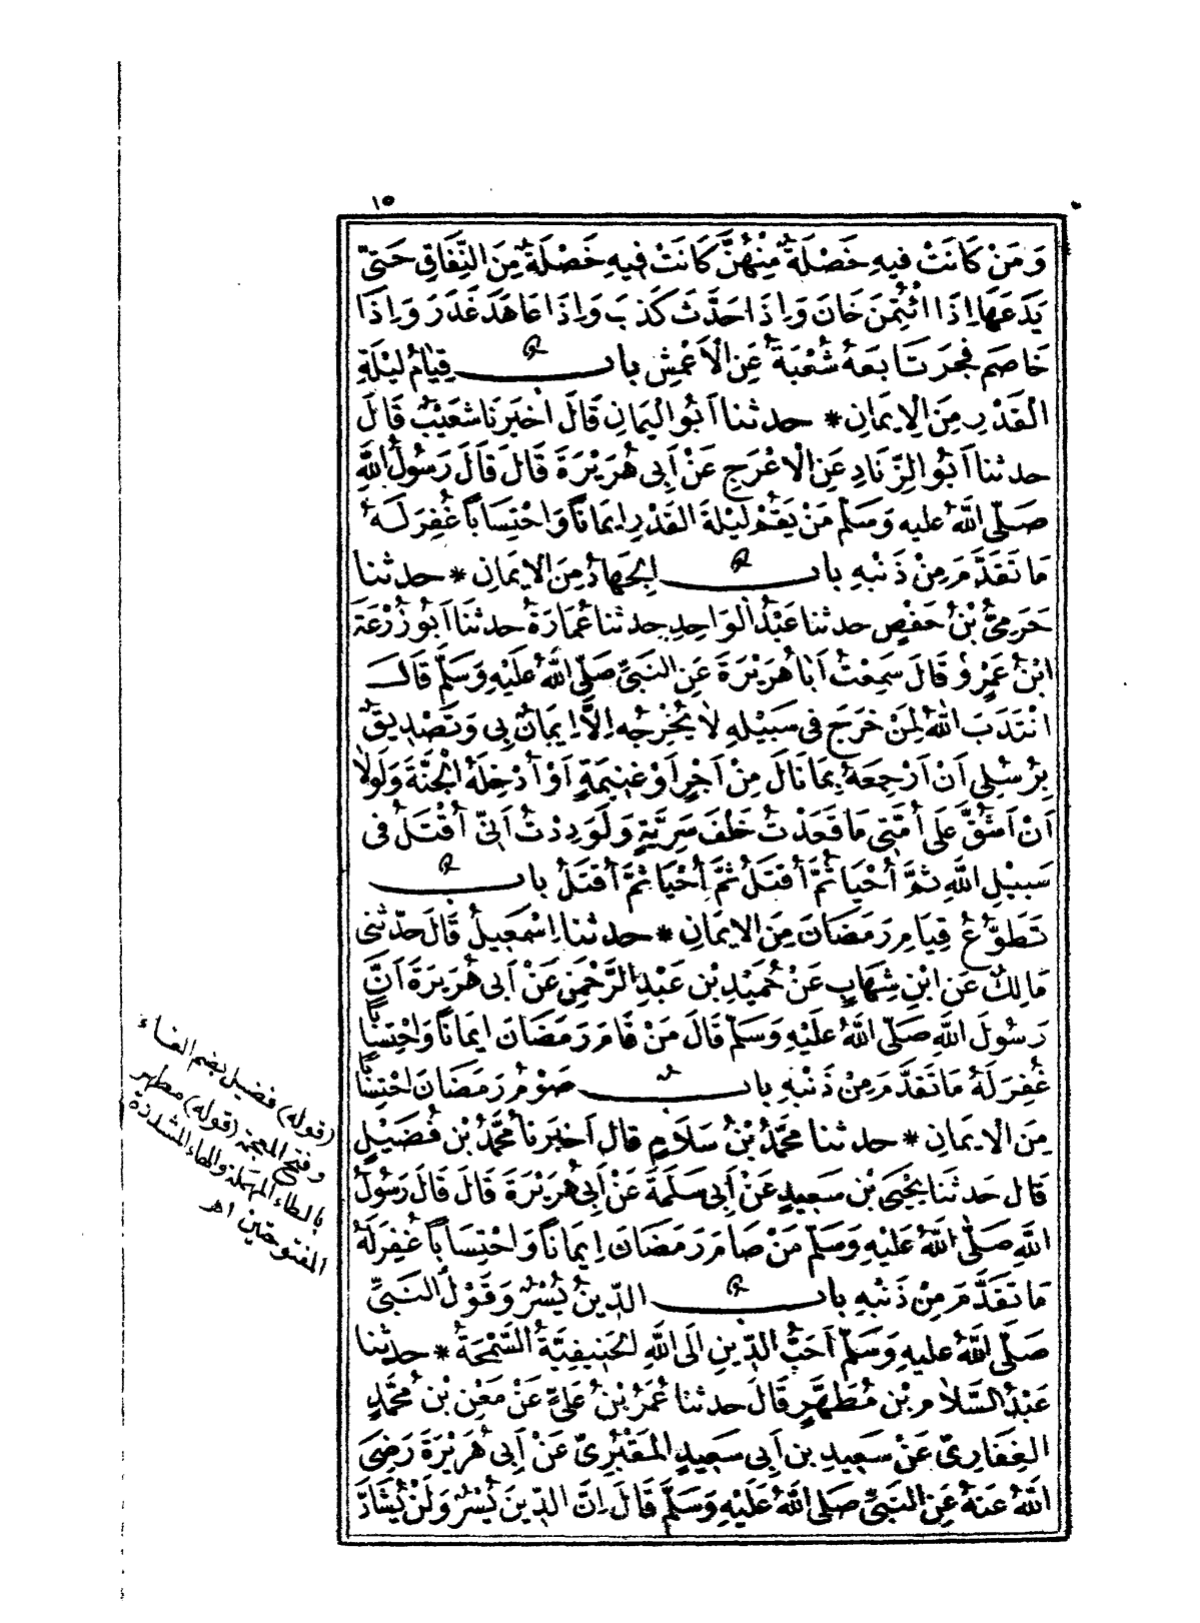 ١٥
وَمَنْ كَانَتْ فِيهِ خَصْلَةٌ مِنْهُنَّ كَانَتْ فِيهِ خَصْلَةٌ مِنَ النِّفَاقِ حَتَّى
يَدَعَهَا اِذَا ائْتُمِنَ خَانَ وَاِذَا حَدَّثَ كَذَبَ وَاِذَا عَاهَدَ غَدَرَ وَاِذَا
خَاصَمَ فَجَرَ تَابَعَهُ شُعْبَةُ عَنِ الْاَعْمَشِ باب قِيَامُ لَيْلَةِ
الْقَدْرِ مِنَ الْاِيمَانِ * حدثنا اَبُو الْيَمَانِ قَالَ اَخْبَرَنَا شُعَيْبٌ قَالَ
حدثنا اَبُو الزِّنَادِ عَنِ الْاَعْرَجِ عَنْ اَبِى هُرَيْرَةَ قَالَ قَالَ رَسُولُ اللَّهِ
صَلَّى اللَّهُ عليه وَسَلَّمَ مَنْ يَقُمْ لَيْلَةَ الْقَدْرِ اِيمَانًا وَاحْتِسَابًا غُفِرَ لَهُ
مَا تَقَدَّمَ مِنْ ذَنْبِهِ باب اَلْجِهَادُ مِنَ الْاِيمَانِ * حدثنا
حَرَمِىُّ بْنُ حَفْصٍ حدثنا عَبْدُ الْوَاحِدِ حدثنا عُمَارَةُ حدثنا اَبُو زُرْعَةَ
ابْنُ عَمْرٍو قَالَ سَمِعْتُ اَبَا هُرَيْرَةَ عَنِ النَّبِىِّ صَلَّى اللَّهُ عَلَيْهِ وَسَلَّمَ قَالَ
انْتَدَبَ اللَّهُ لِمَنْ خَرَجَ فِى سَبِيْلِهِ لَا يُخْرِجُهُ اِلَّا اِيمَانٌ بِى وَتَصْدِيقٌ
بِرُسُلِى اَنْ اَرْجِعَهُ بِمَا نَالَ مِنْ اَجْرٍ اَوْ غَنِيمَةٍ اَوْ اُدْخِلَهُ الْجَنَّةَ وَلَوْلَا
اَنْ اَشُقَّ عَلَى اُمَّتِى مَا قَعَدْتُ خَلْفَ سَرِيَّةٍ وَلَوَدِدْتُ اَنِّى اُقْتَلُ فِى
سَبِيْلِ اللَّهِ ثُمَّ اُحْيَا ثُمَّ اُقْتَلُ ثُمَّ اُحْيَا ثُمَّ اُقْتَلُ باب
تَطَوُّعُ قِيَامِ رَمَضَانَ مِنَ الْاِيمَانِ * حدثنا اِسْمَعِيلُ قَالَ حَدَّثَنِى
مَالِكٌ عَنِ ابْنِ شِهَابٍ عَنْ حُمَيْدِ بْنِ عَبْدِ الرَّحْمَنِ عَنْ اَبِى هُرَيْرَةَ اَنَّ
رَسُولَ اللَّهِ صَلَّى اللَّهُ عَلَيْهِ وَسَلَّمَ قَالَ مَنْ قَامَ رَمَضَانَ اِيمَانًا وَاحْتِسَابًا
غُفِرَ لَهُ مَا تَقَدَّمَ مِنْ ذَنْبِهِ باب صَوْمُ رَمَضَانَ احْتِسَابًا
مِنَ الْاِيمَانِ * حدثنا مُحَمَّدُ بْنُ سَلَامٍ قال اَخبرنا مُحَمَّدُ بْنُ فُضَيْلٍ
قال حدثنا يَحْيَى بْنُ سَعِيدٍ عَنْ اَبِى سَلَمَةَ عَنْ اَبِى هُرَيْرَةَ قَالَ قَالَ رَسُولُ
اللَّهِ صَلَّى اللَّهُ عَلَيْهِ وَسَلَّمَ مَنْ صَامَ رَمَضَانَ اِيمَانًا وَاحْتِسَابًا غُفِرَ لَهُ
مَا تَقَدَّمَ مِنْ ذَنْبِهِ باب الدِّينُ يُسْرٌ وَقَوْلُ النَّبِىِّ
صَلَّى اللَّهُ عليه وَسَلَّمَ اَحَبُّ الدِّينِ اِلَى اللَّهِ الْحَنِيفِيَّةُ السَّمْحَةُ * حدثنا
عَبْدُ السَّلَامِ بْنُ مُطَهَّرٍ قَالَ حدثنا عُمَرُ بْنُ عَلِىٍّ عَنْ مَعْنِ بْنِ مُحَمَّدٍ
الْغِفَارِىِّ عَنْ سَعِيدِ بن اَبِى سَعِيدٍ الْمَقْبُرِىِّ عَنْ اَبِى هُرَيْرَةَ رَضِىَ
اللَّهُ عَنْهُ عَنِ النَّبِىِّ صَلَّى اللَّهُ عَلَيْهِ وَسَلَّمَ قَالَ اِنَّ الدِّينَ يُسْرٌ وَلَنْ يُشَادَّ
(قوله) فضيل بضم الفاء
وفتح المعجمة (قوله) مطهر
بالطاء المهملة والهاء المشددة
المفتوحتين اهـ